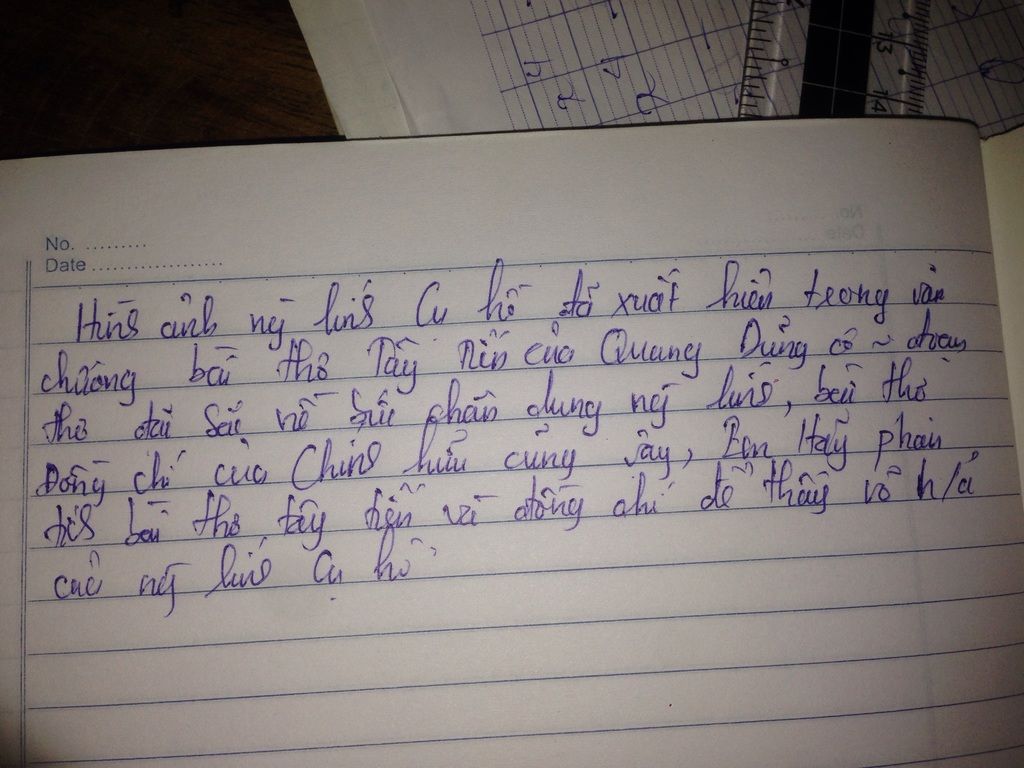 No. .........
Date ...................
Hình ảnh ng lính Cụ hồ đã xuất hiện trong văn
chương bài thơ Tây Tiến của Quang Dũng có ~ đoạn
thơ đặc sắc về bức chân dung ng lính, bài thơ
Đồng chí của Chính hữu cũng vậy, Em Hãy phân
tích bài thơ tây tiến và đồng chí để thấy về h/ả
của ng lính Cụ hồ
13
14